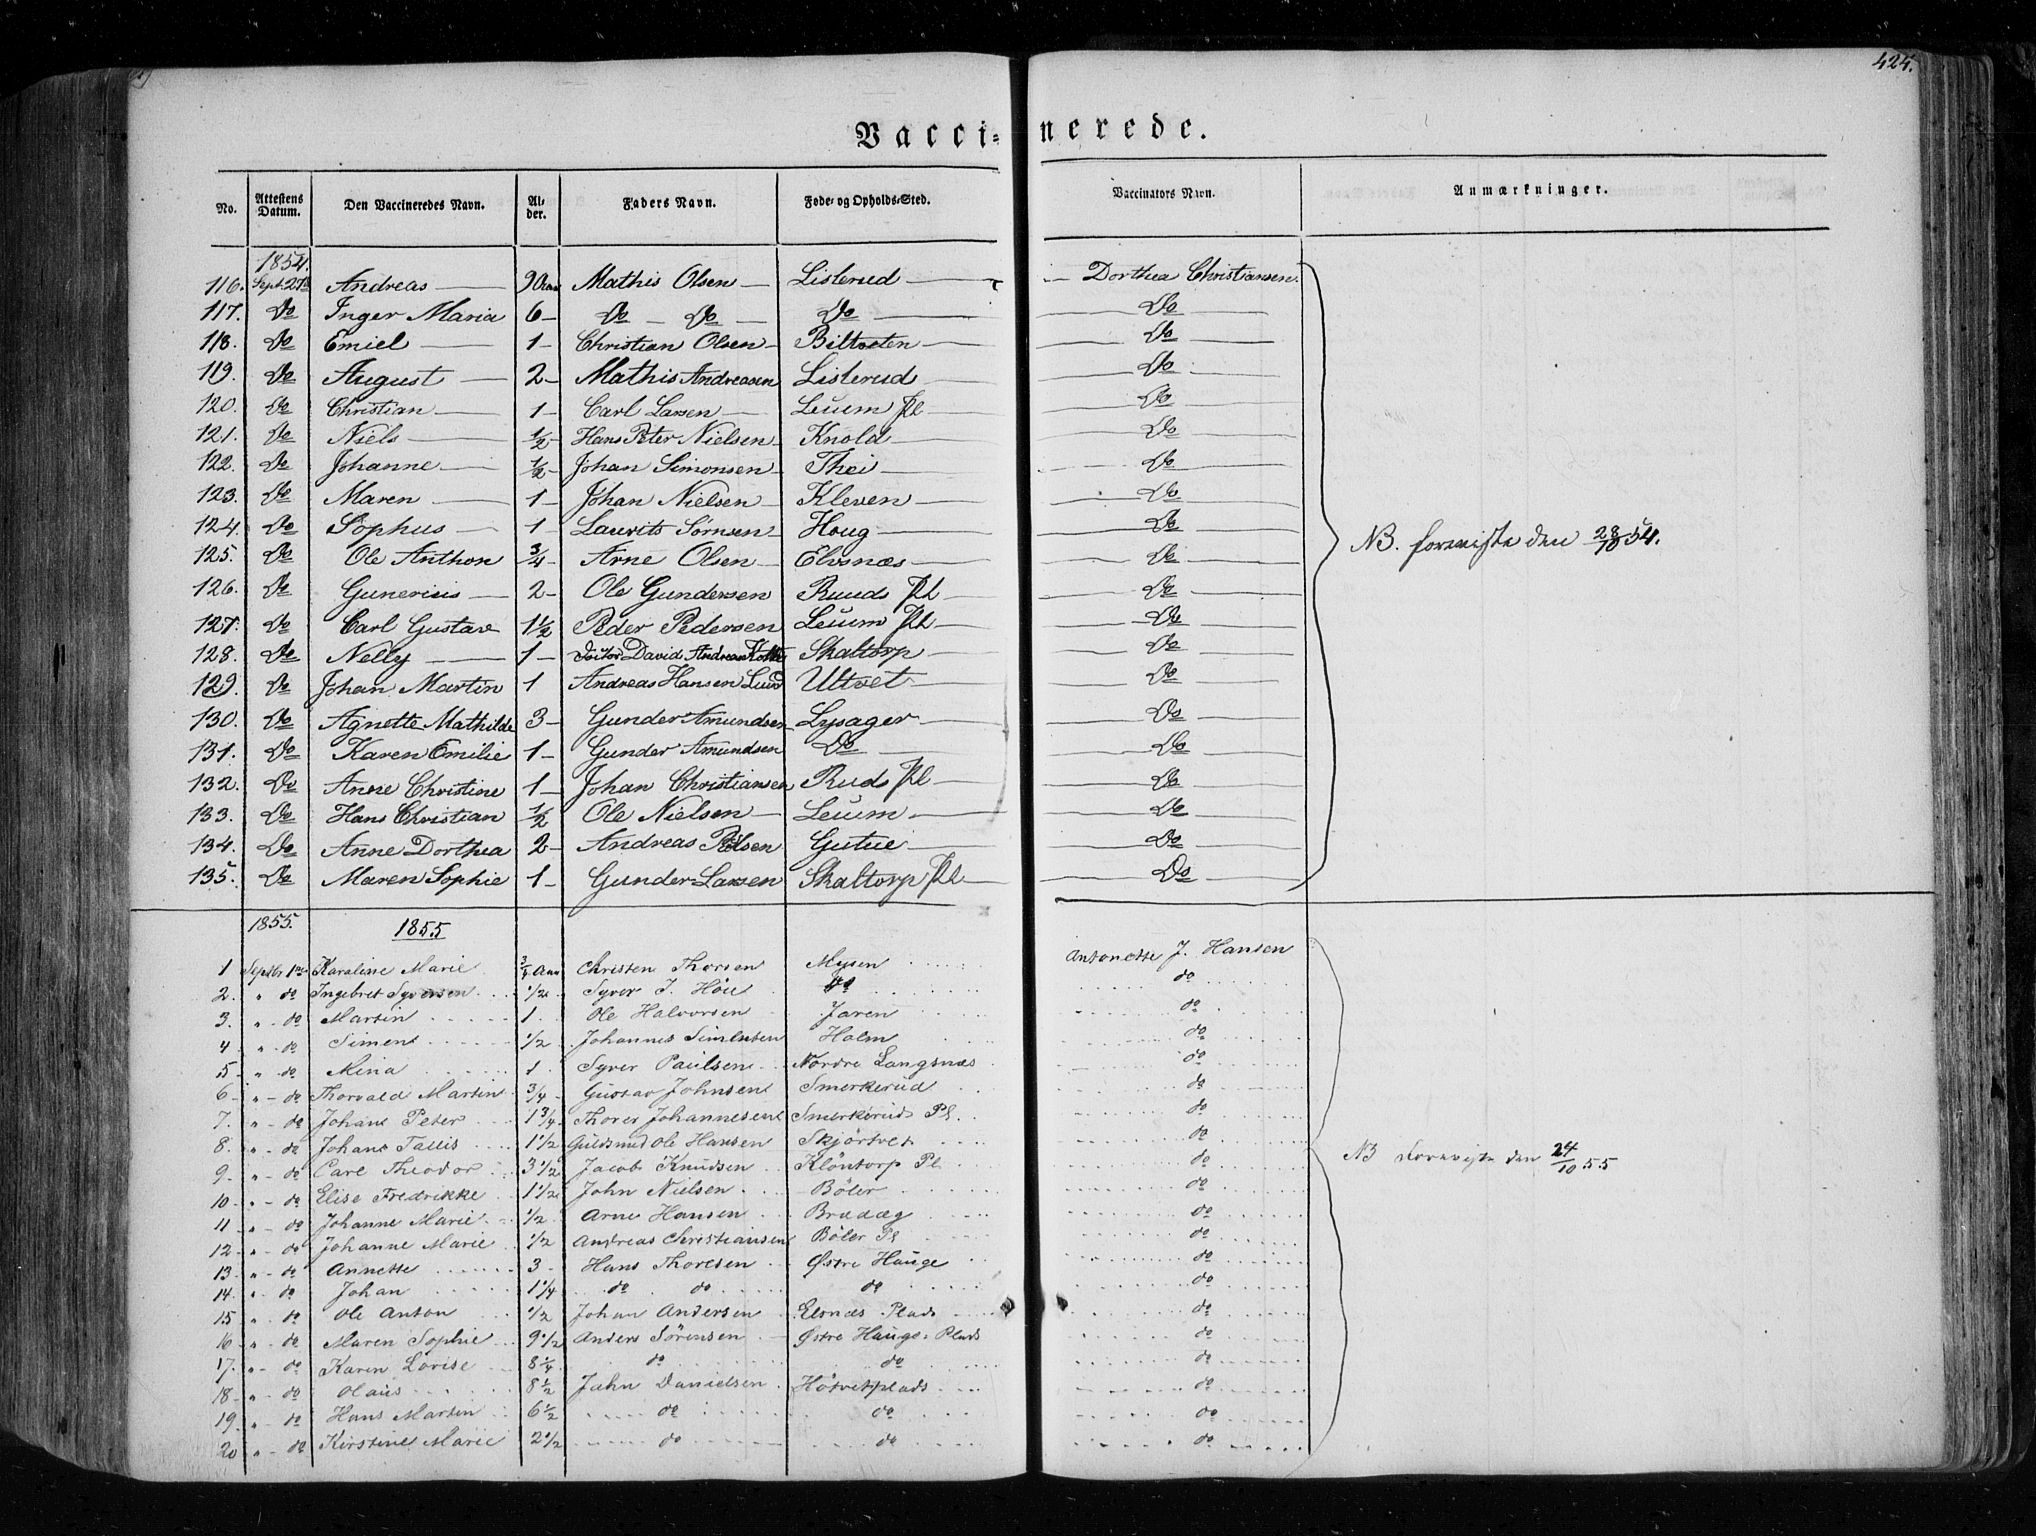 424.
Vacci=nerede.
No. Attestens Datum. Den Vaccineredes Navn. Al- der. Faders Navn. Føde- og Opholds-Sted. Vaccinators Navn. Anmærkninger.
1854.
116. Sept. 27de Andreas 9 Aar Mathis Olsen Listerud Dorthea Christiansen
117. Do Inger Maria 6 Do Do Do Do
118. Do Emiel 1 Christian Olsen Biltveten Do
119. Do August 2 Mathis Andreasen Listerud Do
120. Do Christian 1 Carl Larsen Leuum Pl Do
121. Do Niels 1/2 Hans Peter Nielsen Knold Do
122. Do Johanne 1/2 Johan Simonsen Thei Do
123. Do Maren 1 Johan Nielsen Kleven Do
124. Do Sophus 1 Laurits Sørnsen Houg Do
125. Do Ole Anthon 3/4 Arne Olsen Elvsnæs Do NB. foreviste den 28/10 54.
126. Do Gunerius 2 Ole Gundersen Ruuds Pl Do
127. Do Carl Gustav 1 1/2 Peder Pedersen Leuum Pl Do
128. Do Nelly 1 David Andreas Skaltorp Do
129. Do Johan Martin 1 Andreas Hansen Lund Ultvet Do
130. Do Agnette Mathilde 3 Gunder Amundsen Lysager Do
131. Do Karen Emilie 1 Gunder Amundsen Do Do
132. Do Anne Christine 1 Johan Christiansen Ruds Pl Do
133. Do Hans Christian 1/2 Ole Nielsen Leuum Do
134. Do Anne Dorthea 2 Andreas Gutue Do
135. Do Maren Sophie 1 Gunder Larsen Skaltorp Pl Do
1855. 1855
1 Septbr 1ne Karaline Marie 3/4 Aar Christen Thorsen Mysen Antonette J. Hansen
2. " do Ingebret Syversen 1/2 Syver J. Høie do do
3. " do Martin 1 Ole Halvorsen Jaren do
4 " do Simen 1/2 Johannes Simensen Holm do
5 " do Mina 1 Syver Paulsen Nordre Langsnæs do
6 " do Thorvald Martin 3/4 Gustav Johnsen Smerkerud do
7. " do Johan Peter 1 3/4 Thorer Johannesen Smerkeruds Pl. do
8. " do Johan Tallis 1 1/2 Guldsmed Ole Hansen Skjørtvet do
9 " do Carl Theodor 3 1/2 Jacob Knudsen Kløntorp Pl do NB Forevist den 24/10 55
10 " do Elise Fredrikke 1 1/2 John Nielsen Bøler do
11 " do Johanne Marie 1/2 Arne Hansen Brudæg do
12 " do Johanne Marie 1/2 Andreas Christiansen Bøler Pl do
13 " do Annette 3 Hans Thoresen Østre Hauge do
14 " do Johan 1 1/4 do do do do
15 " do Ole Anton 1/2 Johan Andersen Elsnæs Plads do
16 " do Maren Sophie 9 1/2 Anders Sørensen Østre Hauge Plads do
17. " do Karen Lovise 8 1/4 do do do
18 " do Olaus 8 1/2 John Danielsen Høtvetplads do
19 " do Hans Martin 6 1/2 do do do
20 " do Kirstine Marie 2 1/2 do do do